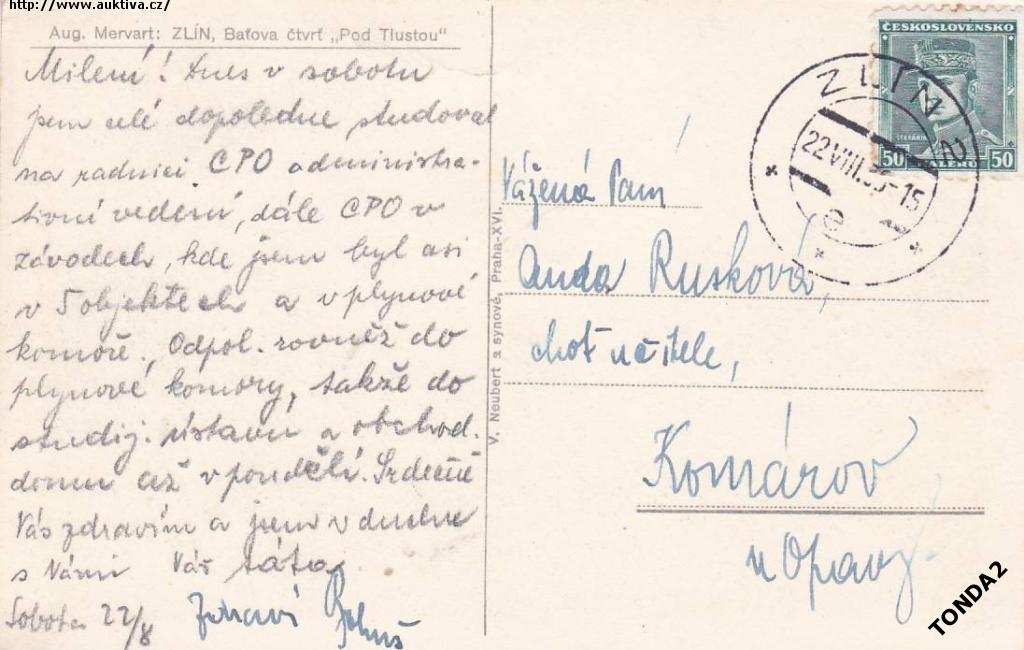 http://www.auktiva.cz/
Aug. Mervart: ZLÍN, Baťova čtvrť „Pod Tlustou“
Milení! Dnes v sobotu
jsem celé dopoledne studoval
na radnici CPO administra-
tivní vedení, dále CPO v
závodech, kde jsem byl asi
v 5 objektech a v plynové
komoře. Odpol. rovněž do
plynové komory, takže do
studij. ústavu a obchod.
domu až v pondělí. Srdečně
Vás zdravím a jsem v duchu
s Vámi Váš táta
Sobota 22/8
Bohuš
V. Neubert a synové, Praha-XVI.
ČESKOSLOVENSKO
ŠTEFÁNIK
50 HALÉŘŮ 50
ZLÍN 2
22.VIII.36-15
e
Vážená Paní
Anda Rusková,
choť učitele,
Komárov
u Opavy
TONDA2